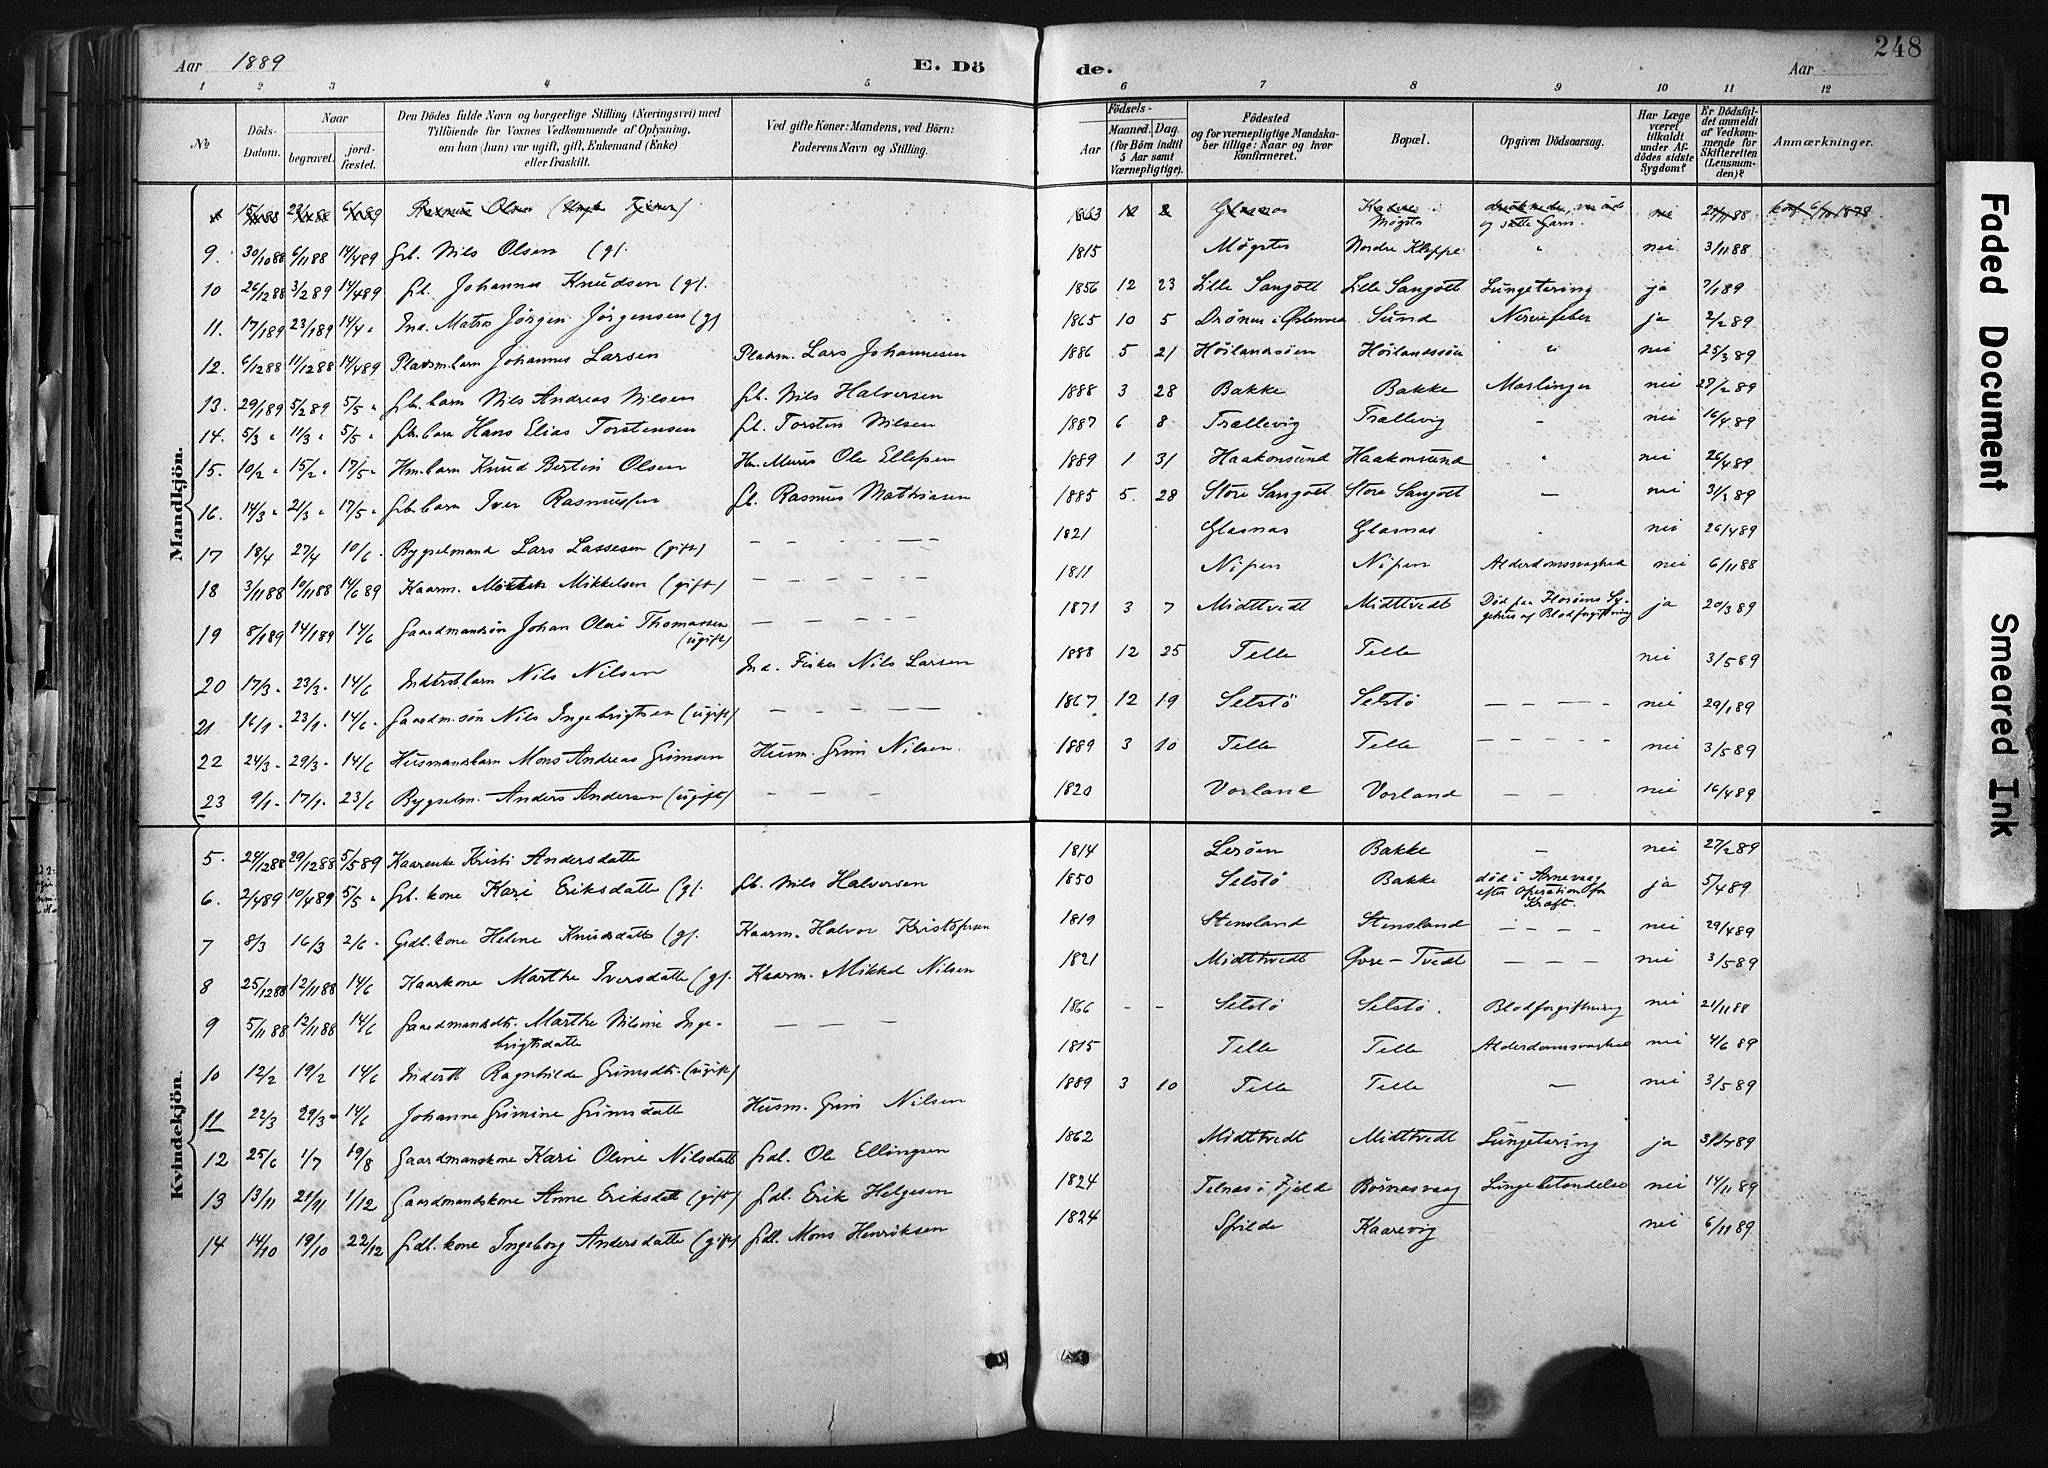 248
Aar 1889 E. Dö de. Aar
1 2 3 4 5 6 7 8 9 10 11 12
№ Döds-Datum. Naar begravet. jord-fæstet. Den Dödes fulde Navn og borgerlige Stilling (Næringsvei) med Tilföiende for Voxnes Vedkommende af Oplysning, om han (hun) var ugift, gift, Enkemand (Enke) eller fraskilt. Ved gifte Koner: Mandens, ved Börn: Faderens Navn og Stilling. Födsels- Aar Maaned. Dag. (for Börn indtil 5 Aar samt Værnepligtige). Födested og for værnepligtige Mandska-ber tillige: Naar og hvor konfirmeret. Bopæl. Opgiven Dödsaarsag. Har Læge været tilkaldt under Af-dödes sidste Sygdom? Er Dödsfal-det anmeldt af Vedkom-mende for Skifteretten (Lensman-den)? Anmærkninger.
Mandkjön.
Rasmus Olsen 1863 12 Glasnæs Møgster og satte Garn. nei 27/11 88 konf 6/10 1878
9. 30/10 88 6/11 88 14/4 89 gb. Nils Olsen (g). 1815 Møgster Nordre Kleppe " nei 3/11 88
10 26/12 88 3/2 89 14/4 89 gb. Johannes Knudsen (g). 1856 12 23 Lille Sangolt Lille Sangolt Lungetæring ja 7/1 89
11. 17/1 89 23/1 89 14/4 " Ind. Matros Jørgen Jørgensen (g) 1865 10 5 Drønen i Østervold Sund Nervefeber ja 2/2 89
12. 6/12 88 11/12 88 14/4 89 Pladsm.barn Johannes Larsen Pladsm. Lars Johannesen 1886 5 21 Höilandsöen Höilandssöen " nei 25/3 89
13. 29/1 89 5/2 89 5/5 " gb. barn Nils Andreas Nilsen gb. Nils Halversen 1888 3 28 Bakke Bakke Mæslinger nei 27/2 89
14. 5/3 " 11/3 " 5/5 " gb. barn Hans Elias Torstensen gb. Torsten Nilsen 1887 6 8 Trællevig Trællevig " nei 16/4 89
15. 10/2 " 15/2 " 17/5 " Hm. barn Knud Bertin Olsen Hm. Murer Ole Ellefsen 1889 1 31 Haakonsund Haakonsund " nei 26/4 89
16. 14/3 " 21/3 " 17/5 " gb. barn Iver Rasmussen gb. Rasmus Mathiasen 1885 5. 28 Store Sangolt Store Sangolt — nei 31/3 89
17 18/4 27/4 10/6 . Bygselmand Lars Lassesen (gift) — — — — — 1821 Glasnæs Glasnæs " nei 26/4 89
18 3/11 88 10/11 88 14/6 89 Kaarm. Morten Mikkelsen (gift) — — — — — 1811 Nipen Nipen Alderdomssvaghed nei 6/11 88
19 8/1 89 14/1 89 14/6 Gaardmandsøn Johan Olai Thomassen (ugift) — — — — — 1871 3 7 Midttvedt Midttvedt Död paa Florøens Sy-gehus af Blodforgiftning ja 20/3 89
20 17/3 . 23/3 . 14/6 Inderstbarn Nils Nilsen Ind. Fisker Nils Larsen 1888 12 25 Telle Telle nei 3/5 89
21 16/1 23/1 . 14/6 . Gaardm.søn Nils Ingebrigtsen (ugift) — — — — — 1867 12 19 Selstø Selstø — — — — nei 29/1 89
22 24/3 . 29/3 . 14/6 Husmandsbarn Mons Andreas Grimsen Husm. Grim Nilsen 1889 3 10 Telle Telle — — — — nei 3/5 89
23 9/1 . 17/1 . 23/6 Bygselm. Anders Andersen (ugift) — — — 1820 Vorland Vorland — — nei 16/4 89
Kvindekjön.
5. 24/12 88 29/12 88 5/5 89 Kaarenke Kristi Andersdatte 1814 Lerøen Bakke — nei 27/2 89
6. 2/4 89 10/4 89 5/5 " gb. kone Kari Eriksdatte (g). gb. Nils Halversen 1850 Selstø Bakke død i Arnevaag efter Operation for Kræft. ja 5/4 89
7 8/3 16/3 2/6 . Gdb. kone Helene Knudsdatte (g). Kaarm. Halvor Kristofersen 1819 Stensland Stensland — — — — nei 29/4 89
8 25/12 88 12/11 88 14/6 Kaarkone Marthe Iversdatte (g). Kaarm. Mikkel Nilsen 1821 Midttvedt Øvre-Tvedt — — — nei 3/5 89
9 5/11 88 12/11 88 14/6 Gaardmandsdt. Marthe Nilsine Inge-brigtsdatte — — — 1866 - - Selstø Selstø . Blodforgiftning nei 21/11 88
10 12/2 19/2 14/6 Inderst Ragnhilde Grimsdt. (ugift) 1815 Telle Telle Alderdomssvaghed nei 4/6 89
11 22/3 29/3 - 14/6 Johanne Grimine Grimsdatte Husm. Grim Nilsen 1889 3 10 Telle Telle — nei 3/5 89
12 25/6 1/7 19/8 Gaardmandskone Kari Oline Nilsdatte Gdb. Ole Ellingsen 1862 Midttvedt Midttvedt Lungetæring ja 31/7 89
13 13/11 21/11 1/12 Gaardmandskone Anne Eriksdatte (gift) Gdb. Erik Helgesen 1824 Telnæs i Fjeld Børnæsvaag Lungebetændelse nei 14/11 89
14 14/10 19/10 22/12 Gdb. kone Ingeborg Andersdatte (gift) Gdb. Mons Henriksen 1824 Spilde Kaarevig nei 6/11 89
Faded Document
Smeared Ink